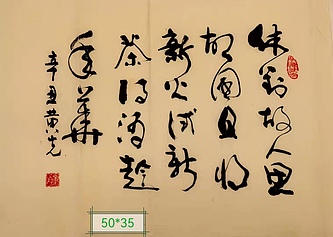 休对故人思
故国且将
新火试新
茶诗酒趁
年华
辛丑黄光
50*35